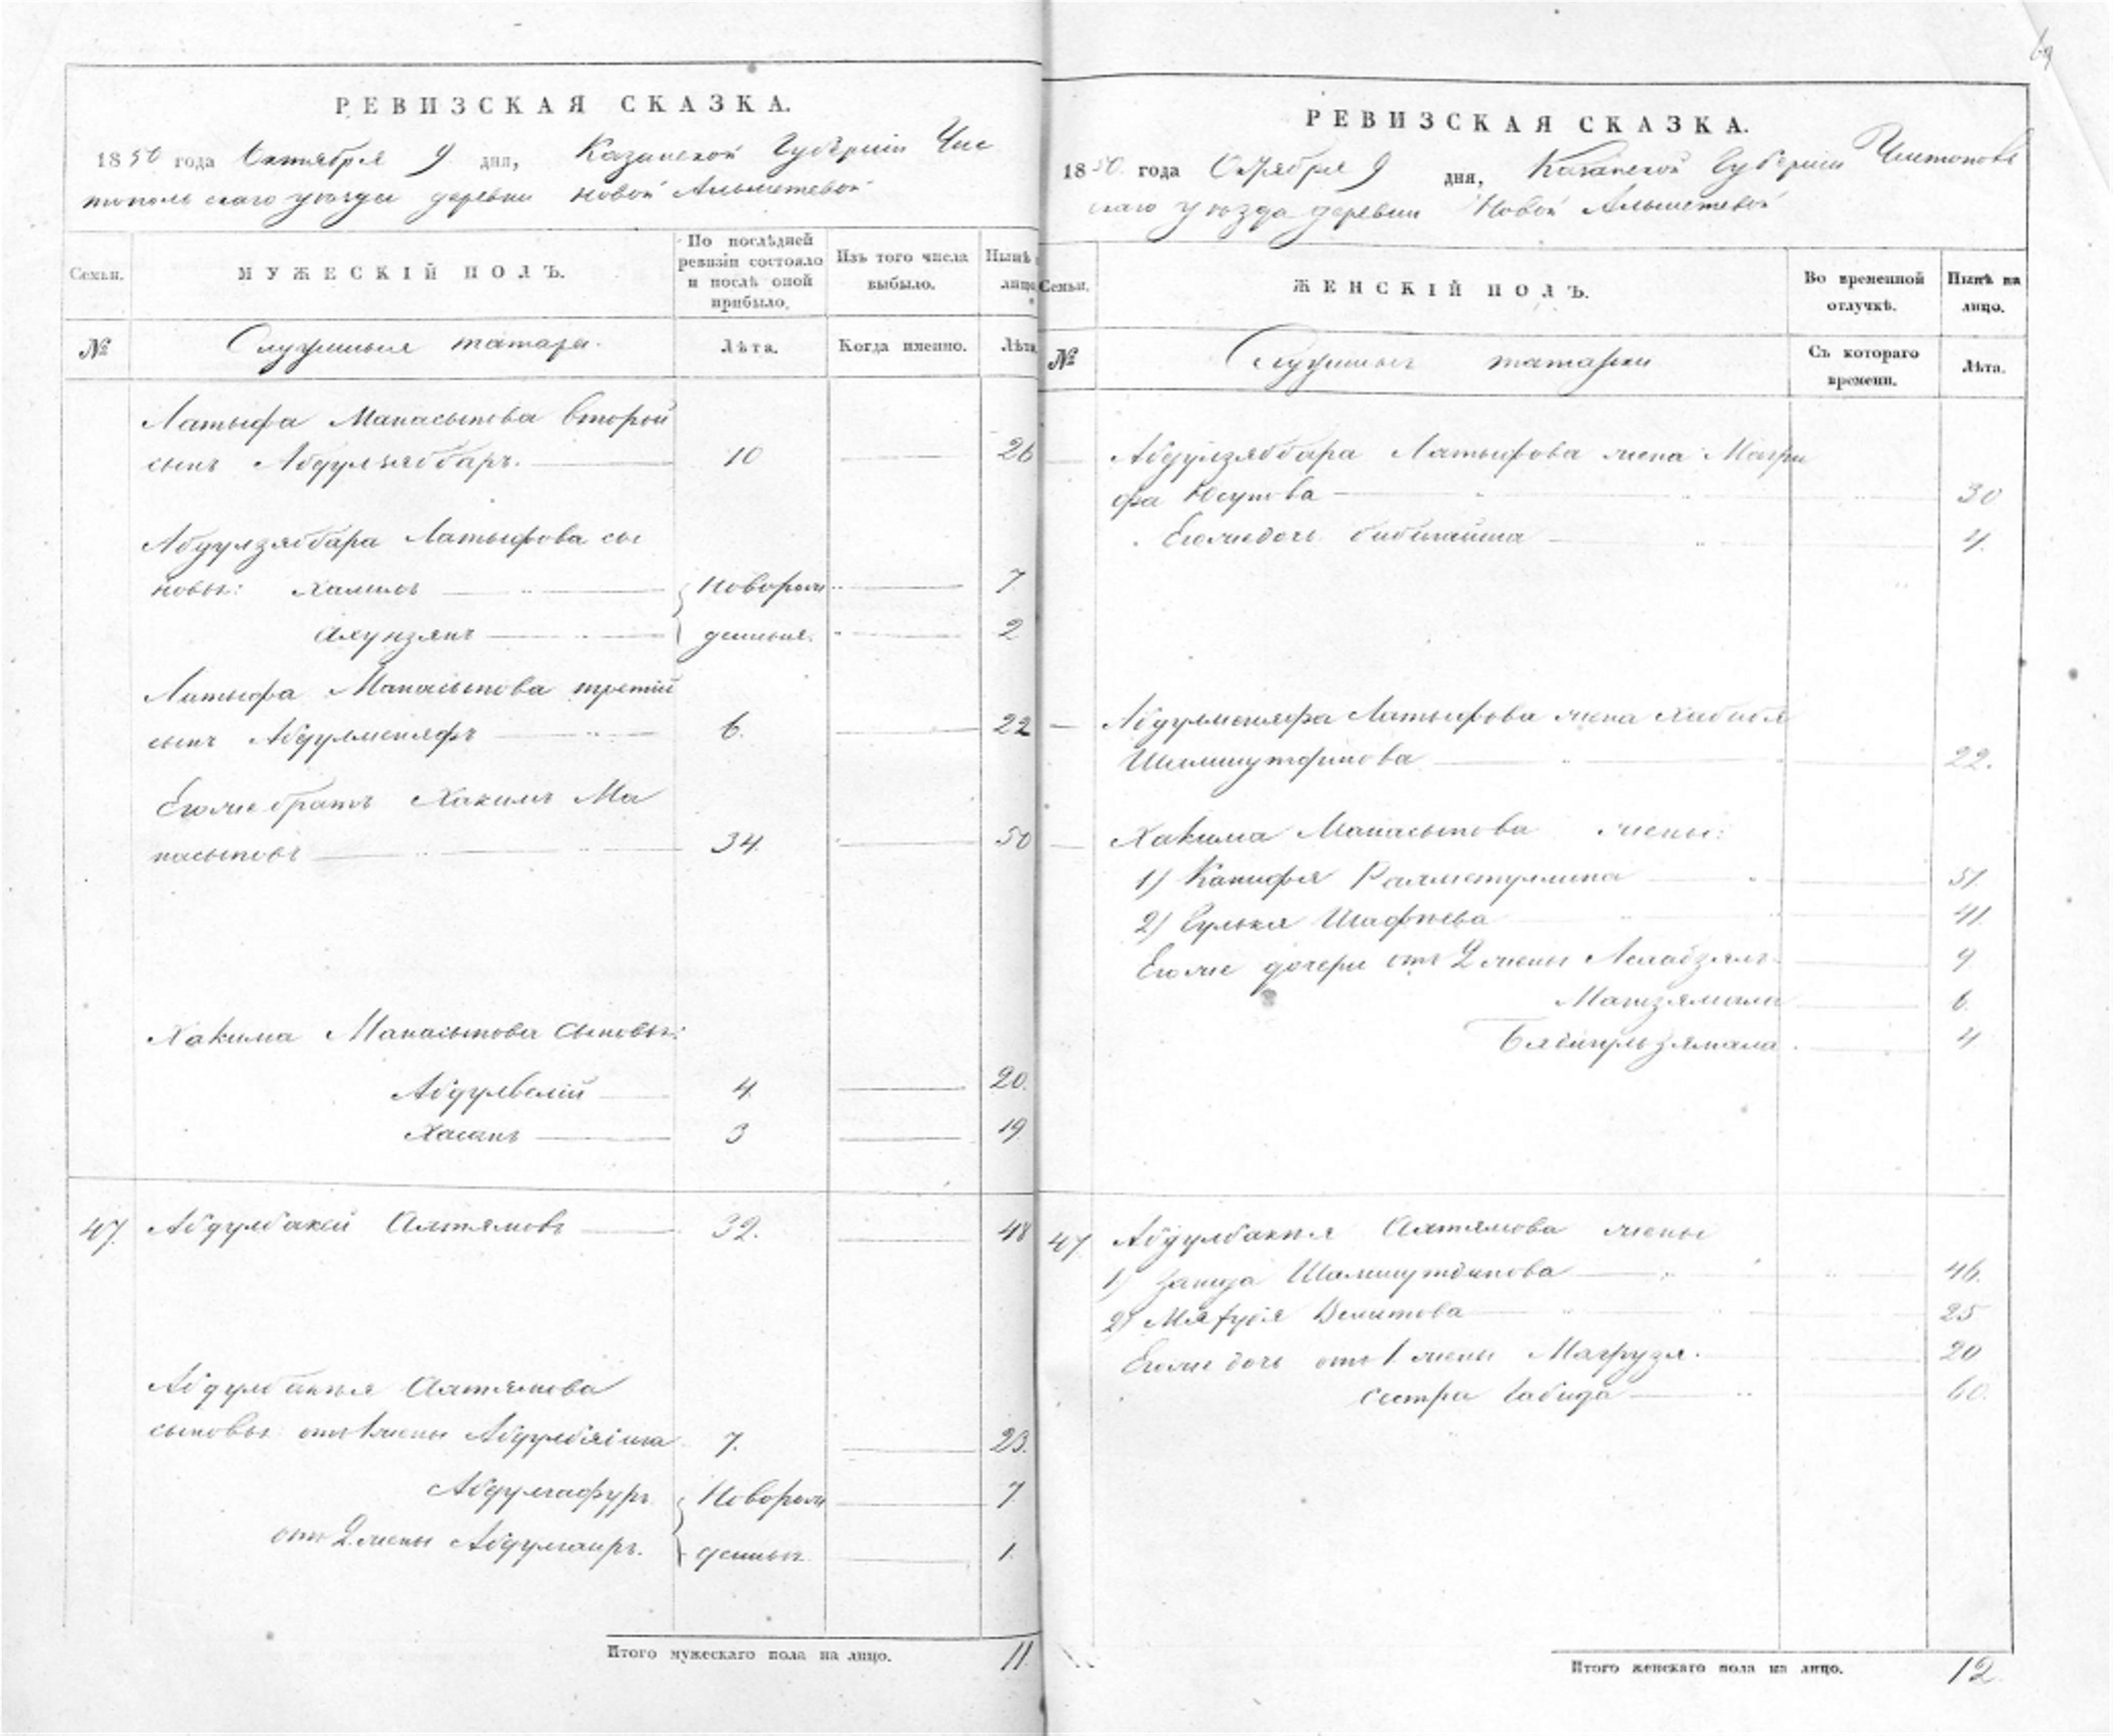 РЕВИЗСКАЯ СКАЗКА.
1850 года Октября 9 дня, Казанской Губерніи Чис
топольскаго уѣзда деревни Новой Альметевой
Семьи. МУЖЕСКІЙ ПОЛЪ. По послѣдней ревизіи состояло и послѣ оной прибыло. Изъ того числа выбыло. Нынѣ лицо
№ Служилыя татары. Лѣта. Когда именно. Лѣта
Латыфа Манасыпова второй
сынъ Абдулзяббаръ. 10 26
Абдулзяббара Латыфова сы
новья: Халилъ Новорож 7
Ахунзянъ денныя. 2
Латыфа Манасыпова третій
сынъ Абдулменяфъ 6. 22
Егоже братъ Хакимъ Ма
насыповъ 34. 50
Хакима Манасыпова сыновья:
Абдулвелій 4. 20.
Хасанъ 3 19
47. Абдулбакей Алтямовъ 32. 48
Абдулбакия Алтямова
сыновья: отъ 1 жены 7. 23.
Абдулгафуръ Новорож 7
отъ 2 жены Абдулгаиръ. денныя 1.
Итого мужескаго пола на лицо. 11.
69
РЕВИЗСКАЯ СКАЗКА.
1850 года Октября 9 дня, Казанской Губерніи Чистополь
скаго уѣзда деревни Новой Альметевой
Семьи. ЖЕНСКІЙ ПОЛЪ. Во временной отлучкѣ. Нынѣ на лицо.
№ Служилыя татарки Съ котораго времени. Лѣта.
Абдулзяббара Латыфова жена Магри
фа Юсупова 30
Егоже дочь Бибигайша 4.
Абдулменяфа Латыфова жена Хабибя
22.
Хакима Манасыпова жены:
1) Канифя Рахметуллина 51.
2) Шафѣева 41.
Егоже дочери отъ 2 жены 9
6.
4
47. Абдулбакия Алтямова жены
1) 46.
2) 25
Егоже дочь отъ 1 жены Магрузя. 20
сестра Габида 60.
Итого женскаго пола на лицо. 12.